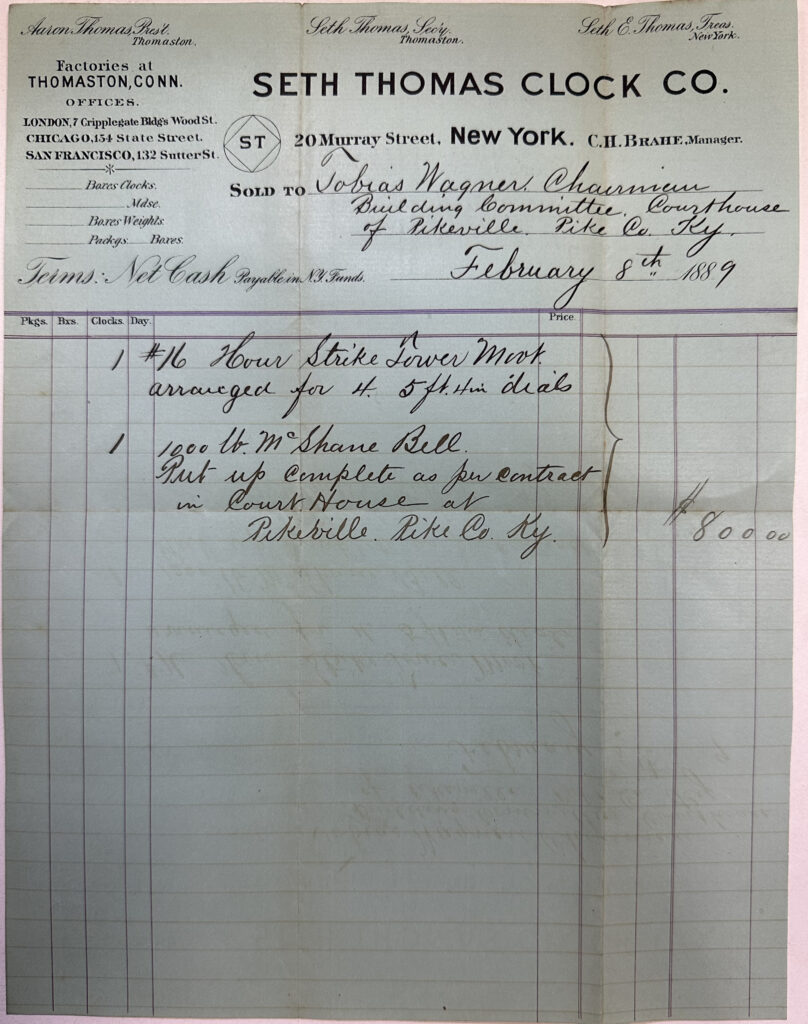 Aaron Thomas, Pres't.
Thomaston.
Seth Thomas, Sec'y.
Thomaston.
Seth E. Thomas, Treas.
New York.
Factories at
THOMASTON, CONN.
OFFICES.
LONDON, 7 Cripplegate Bldg's Wood St.
CHICAGO, 154 State Street.
SAN FRANCISCO, 132 Sutter St.
Boxes Clocks.
Mdse.
Boxes Weights.
Packgs Boxes.
SETH THOMAS CLOCK CO.
ST
20 Murray Street, New York. C. H. BRAHE, Manager.
SOLD TO Tobias Wagner. Chairman
Building Committee. Courthouse
of Pikeville. Pike Co. Ky.
Terms: Net Cash Payable in N.Y. Funds.
February 8th 1889
Pkgs. Bxs. Clocks. Day. Price
1 #16 Hour Strike Tower Movt.
arranged for 4. 5 ft. 4 in dials
1 1000 lb. McShane Bell.
Put up complete as per contract
in Court House at
Pikeville. Pike Co. Ky.
$ 800 00